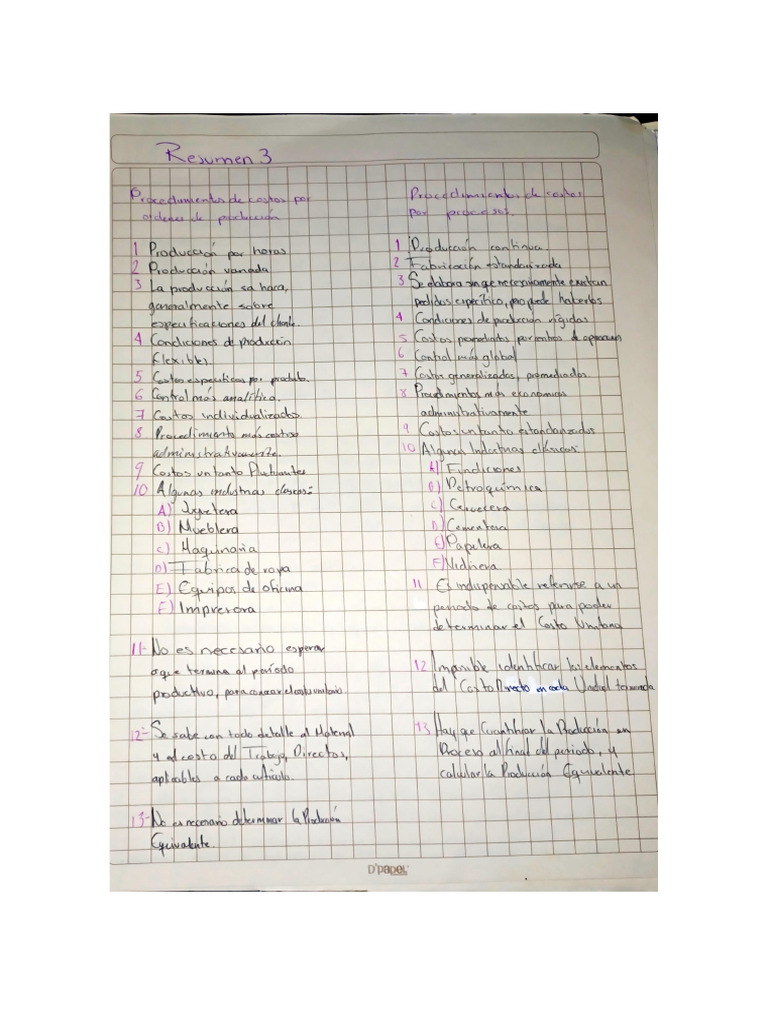 Resumen 3
Procedimientos de costos por
ordenes de producción
1 Producción por horas
2 Producción variada
3 La producción se hace,
generalmente sobre
especificaciones del cliente.
4 Condiciones de producción
flexibles
5 Costos especificos por produto.
6 Control más analítico.
7 Costos individualizados
8 Procedimiento más costoso
administrativamente.
9 Costos un tanto fluctuantes
10 Algunas industrias clasicas:
A) Juguetera
B) Mueblera
C) Maquinaria
D) Fabrica de ropa
E) Equipos de oficina
F) Impresora
11- No es necesario esperar
a que termine al período
productivo, para conocer el costo unitario
12- Se sabe con todo detalle al Material
y el costo del Trabajo, Directos,
aplicables a cada articulo.
13- No es necesario determinar la Producción
Equivalente.
Procedimientos de costos
por procesos.
1 Producción continua
2 Fabricación estandarizada
3 Se elabora sin que necesariamente existan
pedidos especifico, pro puede haberlos
4 Condiciones de producción rígidas
5 Costos promediados por centros de operacion
6 Control más global
7 Costos generalizados, promediados.
8 Procedimientos más economicos
administrativamente
9 Costos un tanto estandarizados
10 Algunas Industrias clásicas:
A) Fundiciones
B) Petroquímica
C) Cervecera
D) Cementera
E) Papelera
F) Vidriera
11 Es indispensable referirse a un
periodo de costos para poder
determinar el Costo Unitario
12 Imposible identificar los elementos
del Costo Directo en cada Unidad terminada
13 Hay que Cuantificar la Producción en
Proceso al final del periodo, y
calcular la Producción Equivalente
D'PAPEL